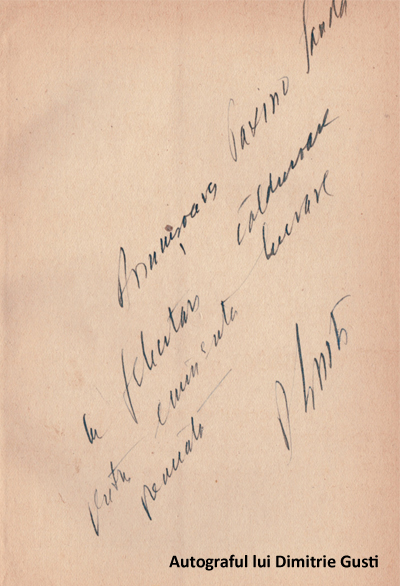 Domnișoarei Paxino Sanda
cu felicitări călduroase
pentru eminenta lucrare
premiată
D Gusti
Autograful lui Dimitrie Gusti